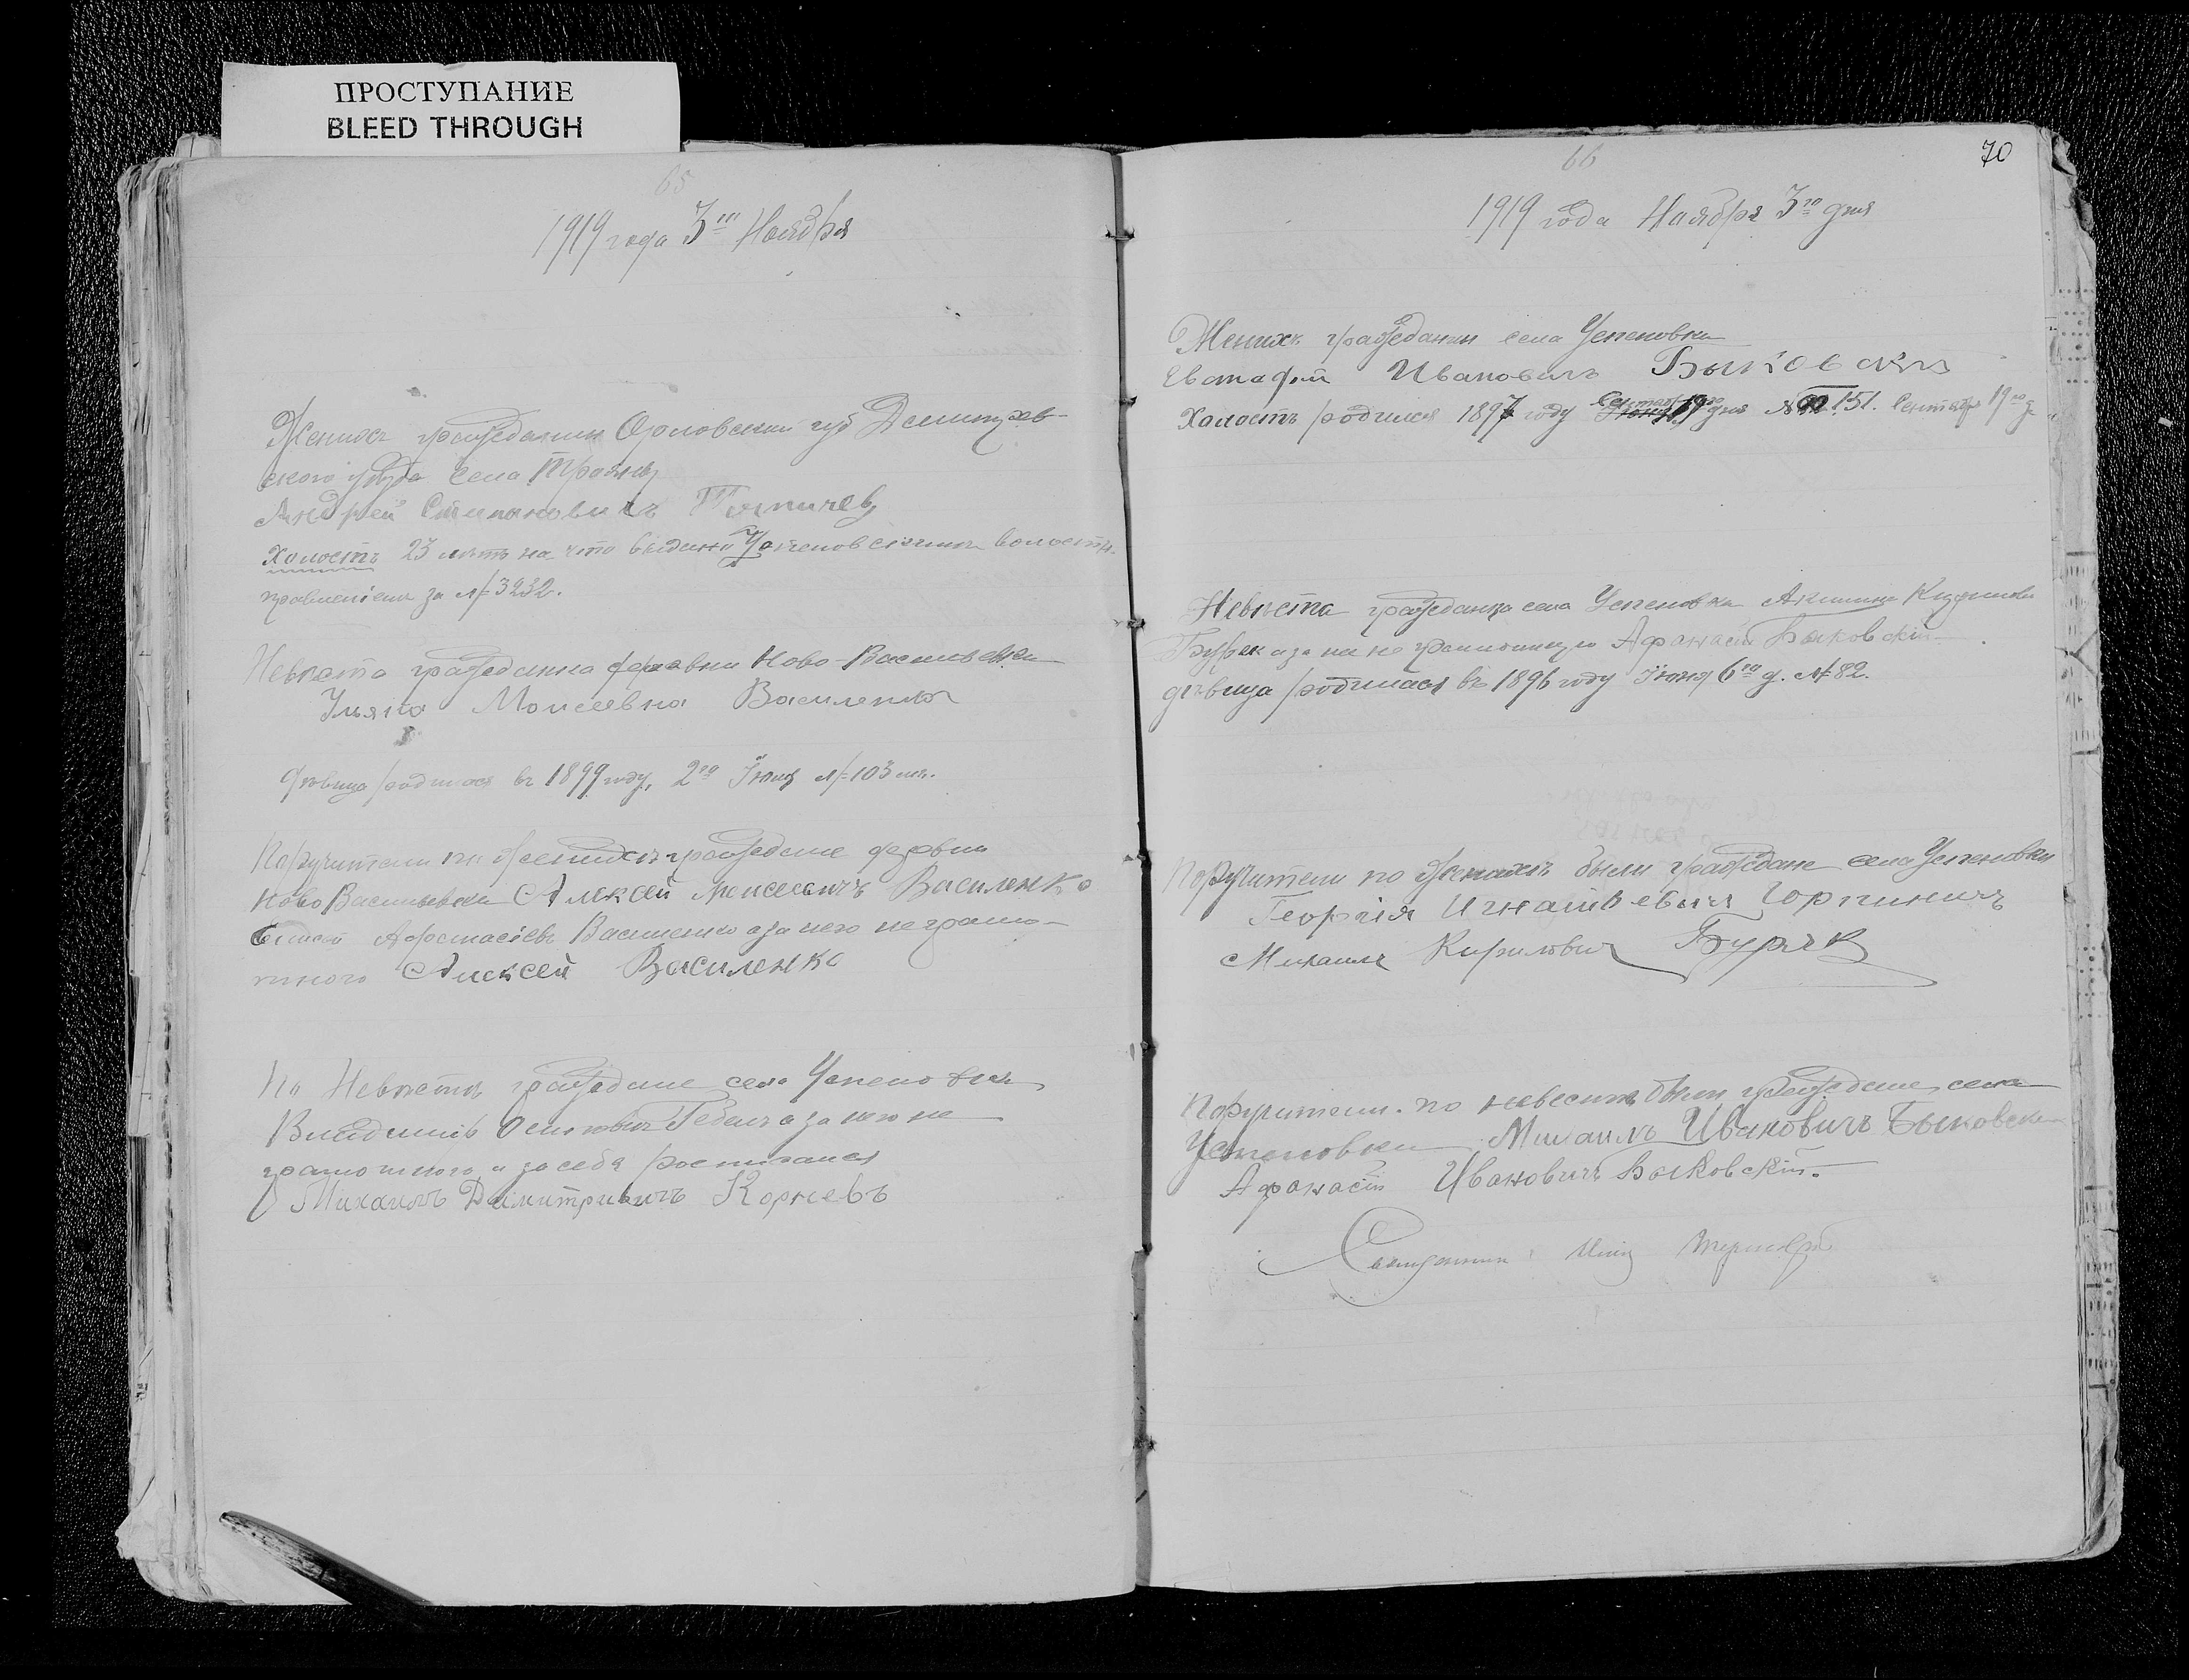 ПРОСТУПАНИЕ
BLEED THROUGH
65
1919 года 3го Ноября
Женихъ гражданин Орловской губ
ского уезда села
Андрей Степановичъ
Холостъ 23 летъ на что выдано Успеновскимъ волостн.
правленiем за № 3232.
Невеста гражданка деревни Ново-Васильевки
Ульяна Моисеевна Василенко
девица родилася въ 1899 году, 2го Iюня № 103
Поручители по женихе граждане деревни
Ново Васильевки Алексей Моисеевичъ Василенко
Афанасiевъ Василенко а за него неграмо-
тного Алексей Василенко
По Невесте граждане села Успеновки
Владимiръ Осипович а за него не
грамотного и за себя росписался
Михаилъ Димитриевичъ Корневъ
70
66
1919 года Ноября 3го дня
Женихъ гражданин села Успеновки
Евстафiй Ивановичъ Быковски
Холостъ родился 1897 году 19го дня № 151. Сентября 19го д
Невеста гражданка села Успеновки Акилина
Буряк а за нее неграмотную Афанасiй Быковскiй
девица родилась въ 1896 году Iюня 6го д. № 82.
Поручители по женихе были граждане села Успеновки
Георгiя Игнатьевичъ Горпиничъ
Михаилъ Кирилович Буряк
Поручители по невесте были граждане села
Успеновки Михаилъ Ивановичъ Быковски
Афанасiй Ивановичъ Быковскiй.
Священник